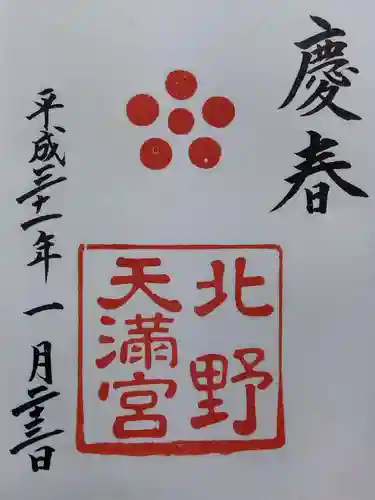 慶春
北野
天満宮
平成三十一年一月二十三日